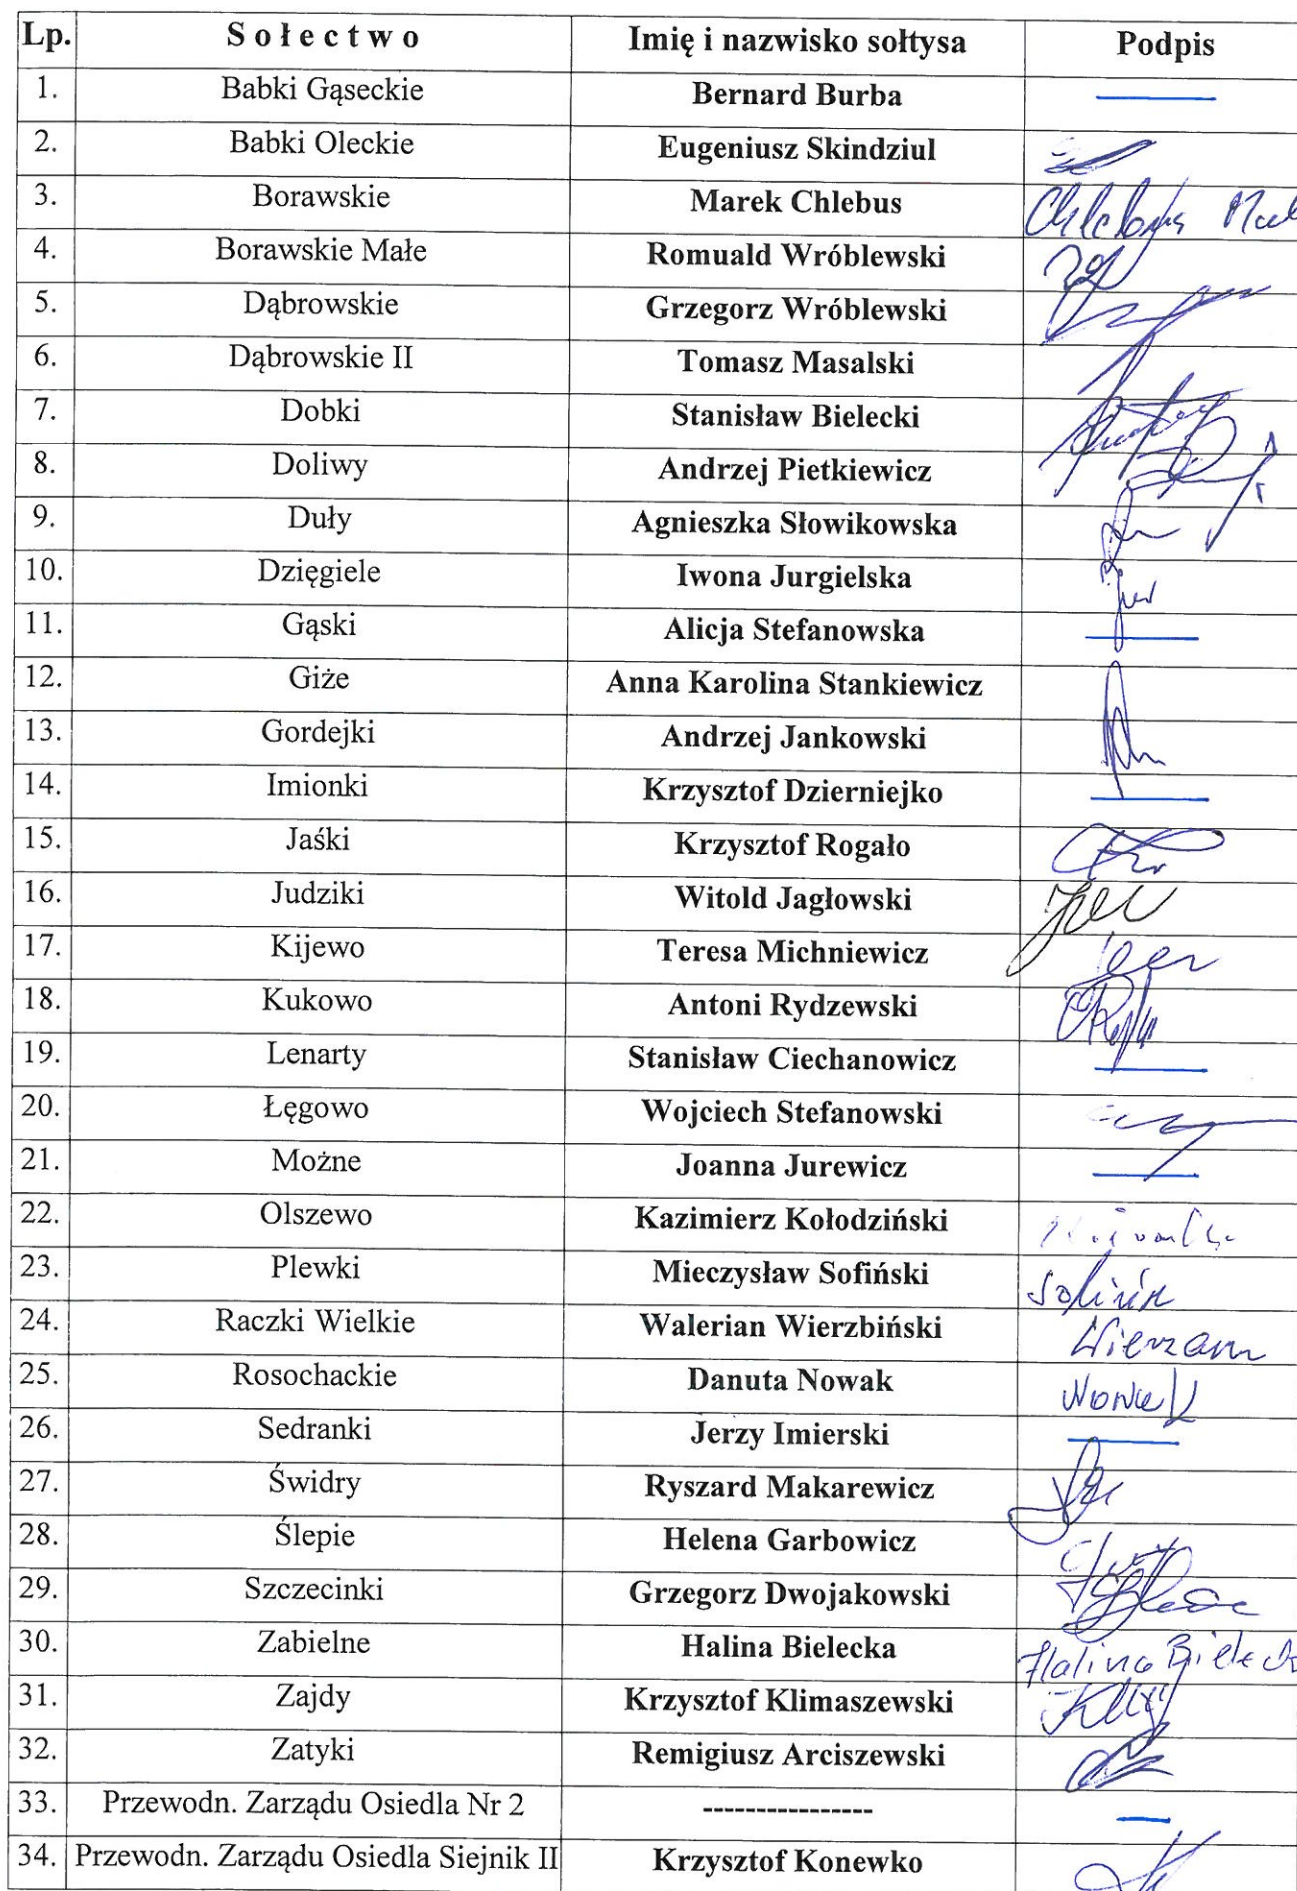 Lp. Sołectwo Imię i nazwisko sołtysa Podpis
1. Babki Gąseckie Bernard Burba
2. Babki Oleckie Eugeniusz Skindziul
3. Borawskie Marek Chlebus
4. Borawskie Małe Romuald Wróblewski
5. Dąbrowskie Grzegorz Wróblewski
6. Dąbrowskie II Tomasz Masalski
7. Dobki Stanisław Bielecki
8. Doliwy Andrzej Pietkiewicz
9. Duły Agnieszka Słowikowska
10. Dzięgiele Iwona Jurgielska
11. Gąski Alicja Stefanowska
12. Giże Anna Karolina Stankiewicz
13. Gordejki Andrzej Jankowski
14. Imionki Krzysztof Dzierniejko
15. Jaśki Krzysztof Rogało
16. Judziki Witold Jagłowski
17. Kijewo Teresa Michniewicz
18. Kukowo Antoni Rydzewski
19. Lenarty Stanisław Ciechanowicz
20. Łęgowo Wojciech Stefanowski
21. Możne Joanna Jurewicz
22. Olszewo Kazimierz Kołodziński
23. Plewki Mieczysław Sofiński
24. Raczki Wielkie Walerian Wierzbiński
25. Rosochackie Danuta Nowak Nowak
26. Sedranki Jerzy Imierski
27. Świdry Ryszard Makarewicz
28. Ślepie Helena Garbowicz
29. Szczecinki Grzegorz Dwojakowski
30. Zabielne Halina Bielecka Halina Bielecka
31. Zajdy Krzysztof Klimaszewski
32. Zatyki Remigiusz Arciszewski
33. Przewodn. Zarządu Osiedla Nr 2 ----------------
34. Przewodn. Zarządu Osiedla Siejnik II Krzysztof Konewko